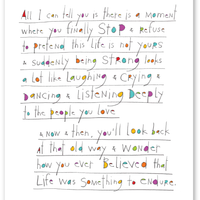 All I can tell you is there is a moment
where you finally STOP & refuse
to pretend this life is not yours
& suddenly being strong looks
a lot like laughing & crying &
dancing & listening deeply
to the people you love
& now & then, you'll look back
at that old way & wonder
how you ever believed that
life was something to endure.